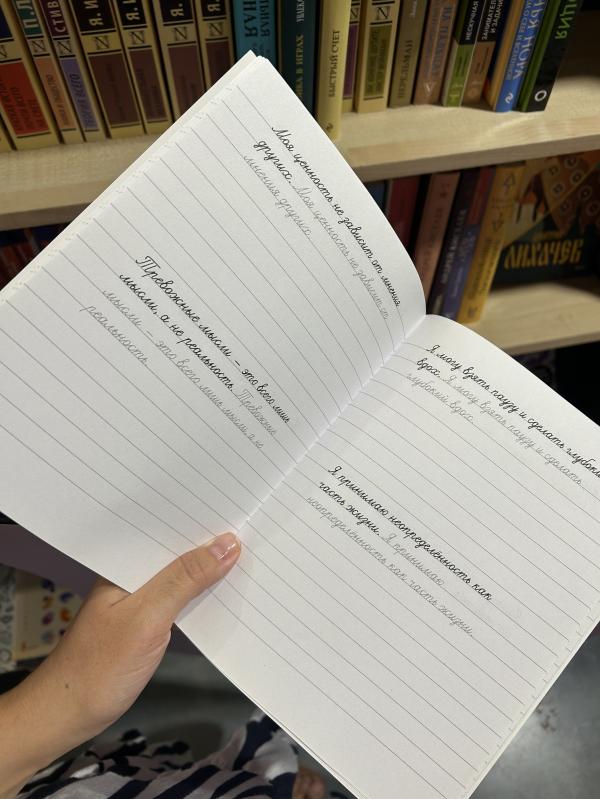 Моя ценность не зависит от мнения
других. Моя ценность не зависит от
мнения других.
Тревожные мысли – это всего лишь
мысли, а не реальность. Тревожные
мысли – это всего лишь мысли, а не
реальность.
Я могу взять паузу и сделать глубокий
вдох. Я могу взять паузу и сделать
глубокий вдох.
Я принимаю неопределённость как
часть жизни. Я принимаю
неопределённость как часть жизни.
БЫСТРЫЙ СЧЕТ
ПЕРЕЛЬМАН